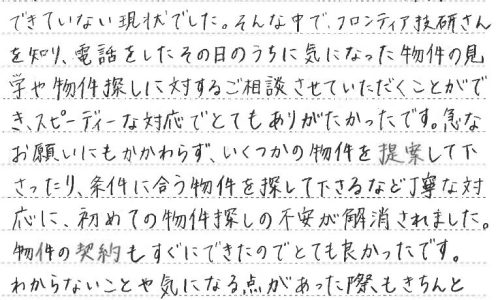 できていない現状でした。そんな中で、フロンティア技研さん
を知り、電話をしたその日のうちに気になった物件の見
学や物件探しに対するご相談させていただくことがで
き、スピーディーな対応でとてもありがたかったです。急な
お願いにもかかわらず、いくつかの物件を提案して下
さったり、条件に合う物件を探して下さるなど丁寧な対
応に、初めての物件探しの不安が解消されました。
物件の契約もすぐにできたのでとても良かったです。
わからないことや気になる点があった際もきちんと